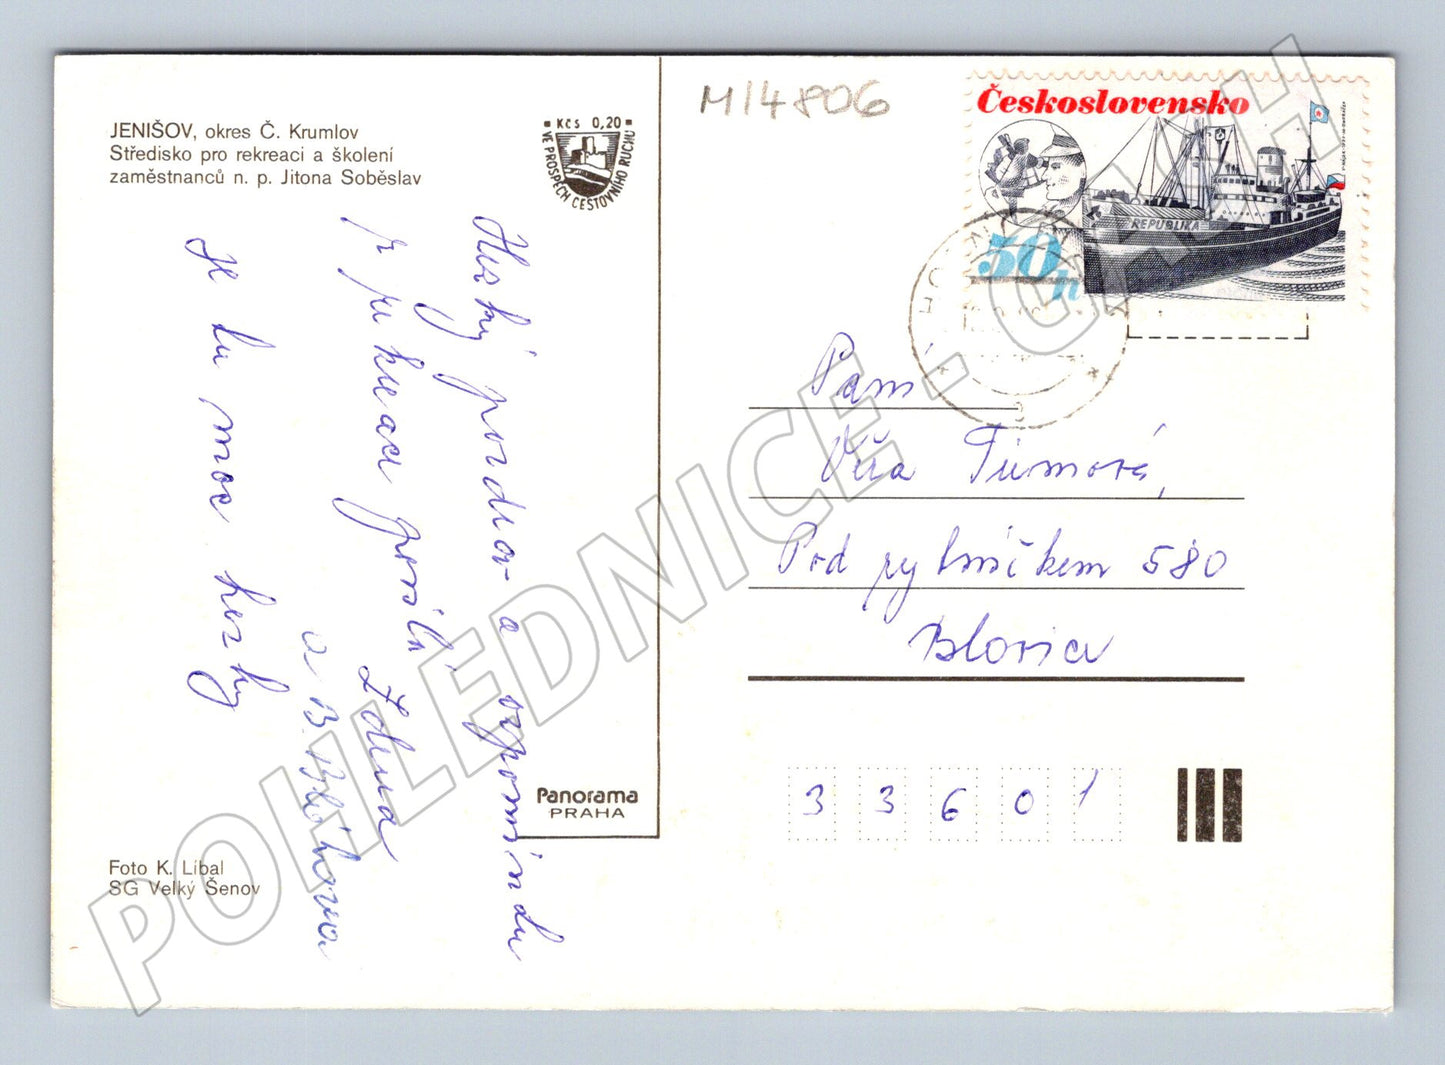 JENIŠOV, okres Č. Krumlov
Středisko pro rekreaci a školení
zaměstnanců n. p. Jitona Soběslav
KČS 0,20
VE PROSPĚCH CESTOVNÍHO RUCHU
M14806
Československo
REPUBLIKA
50h
Hezký pozdrav a vzpomínku
z rekreace posílá
Zdena
a B. Bláhova
Je tu moc hezky
Paní
Věra Tůmová,
Pod rybníčkem 580
Blovice
33601
Panorama
PRAHA
Foto K. Líbal
SG Velký Šenov
POHLEDNICE - GAHH